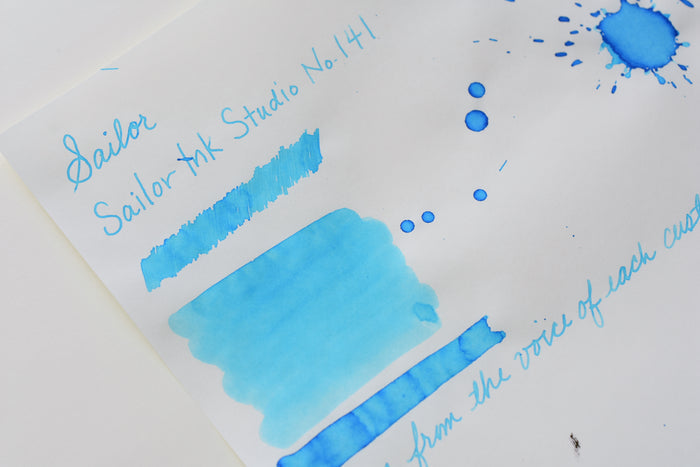 Sailor
Sailor Ink Studio No.141
from the voice of each